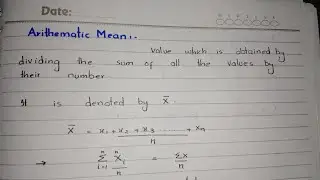 Date:
Arithematic Mean:-
value which is obtained by
dividing the sum of all the values by
their number
It is denoted by X̅.
X̅ = x₁ + x₂ + x₃ ......... + xₙ
n
→ Σ Xᵢ = Σx
i=1
n n